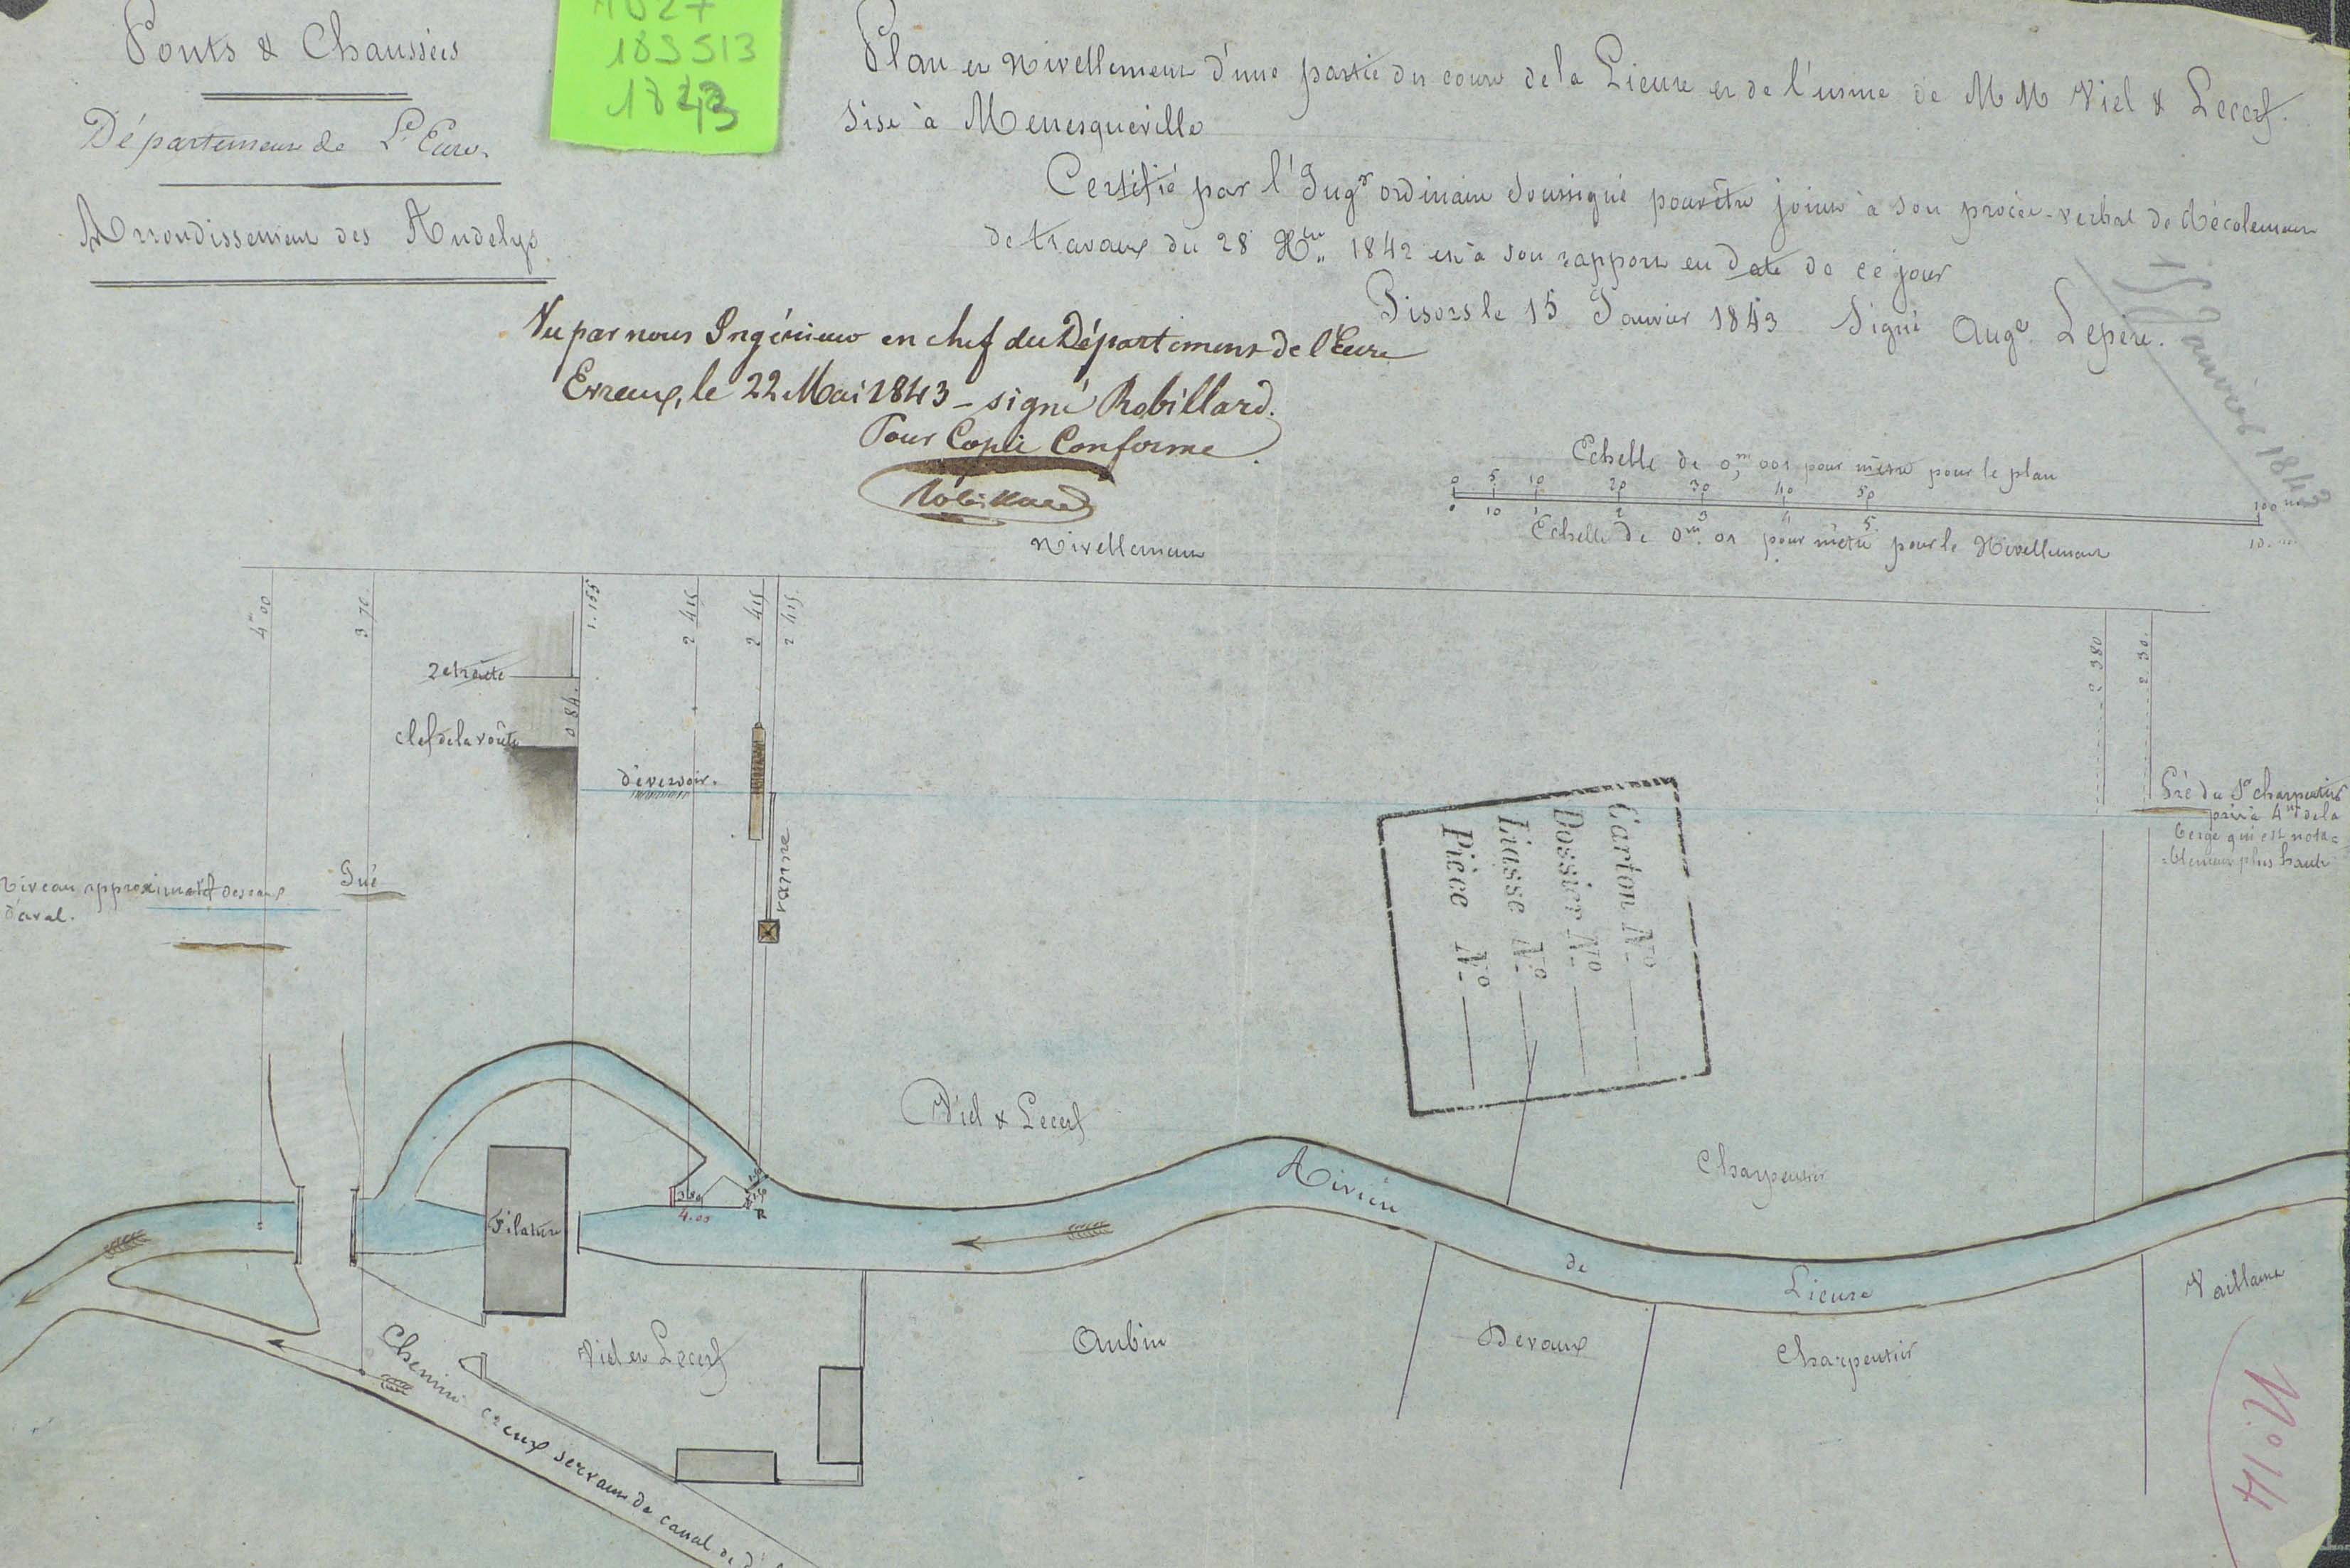 Ponts & Chaussées
Département de L'Eure.
Arrondissement des Andelys
1027
189513
1843
Plan et Nivellement d'une partie du cours de la Lieure et de l'usine de MM Viel & Lecerf.
sise à Menesqueville
Certifié par l'Ingr ordinaire soussigné pour être joint à son procès-verbal de Récolement
de travaux du 28 Xbre 1842 et à son rapport en date de ce jour
Gisors le 15 Janvier 1843 Signé Auge. Lepère.
15 Janvier 1843
Vu par nous Ingénieur en chef du Département de l'Eure
Evreux, le 22 Mai 1843 - signé Robillard.
Pour Copie Conforme
Robillard
Echelle de 0,m001 pour mètre pour le plan
0 5 10 20 30 40 50 100 m
0 10 1 2 3 4 5 10
Echelle de 0m.01 pour mètre pour le Nivellement
Nivellement
4m00
3 70
1.155
2 415
2 415
2 415
2 380
2 30
retraite
0 84.
clef de la voûte
déversoir.
vanne
Gué
Niveau approximatif des eaux
d'aval.
Pré du Sr charpentier
pris à 4m de la
berge qui est nota=
=blement plus haute
Carton No
Dossier No
Liasse No
Pièce No
Viel & Lecerf
Charpentier
Rivière
de
Lieure
Filature
4.00
R
Viel et Lecerf
Aubin
Devaux
Charpentier
Vaillant
Chemin creux servant de canal de
No 14